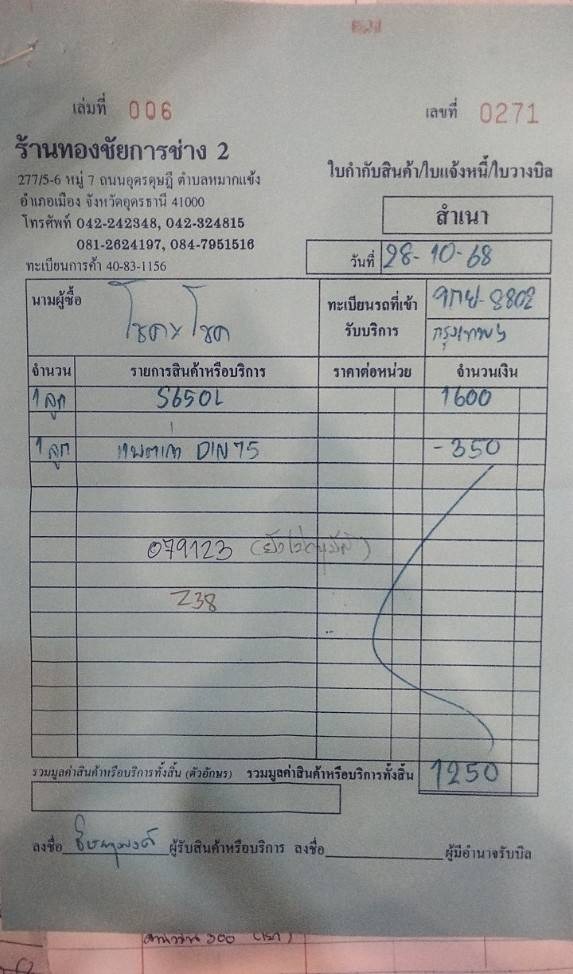 เล่มที่ 006 เลขที่ 0271
ร้านทองชัยการช่าง 2
277/5-6 หมู่ 7 ถนนอุดรดุษฎี ตำบลหมากแข้ง
อำเภอเมือง จังหวัดอุดรธานี 41000
โทรศัพท์ 042-242348, 042-324815
081-2624197, 084-7951516
ทะเบียนการค้า 40-83-1156
ใบกำกับสินค้า/ใบแจ้งหนี้/ใบวางบิล
สำเนา
วันที่ 28-10-68
นามผู้ซื้อ โชคxโชค
ทะเบียนรถที่เข้ารับบริการ 8802
กรุงเทพฯ
จำนวน รายการสินค้าหรือบริการ ราคาต่อหน่วย จำนวนเงิน
1 ลูก S650L 1600
1 ลูก แบตเก่า DIN 75 -350
079123
Z38
รวมมูลค่าสินค้าหรือบริการทั้งสิ้น (ตัวอักษร) รวมมูลค่าสินค้าหรือบริการทั้งสิ้น 1250
ลงชื่อ ผู้รับสินค้าหรือบริการ ลงชื่อ ผู้มีอำนาจรับบิล